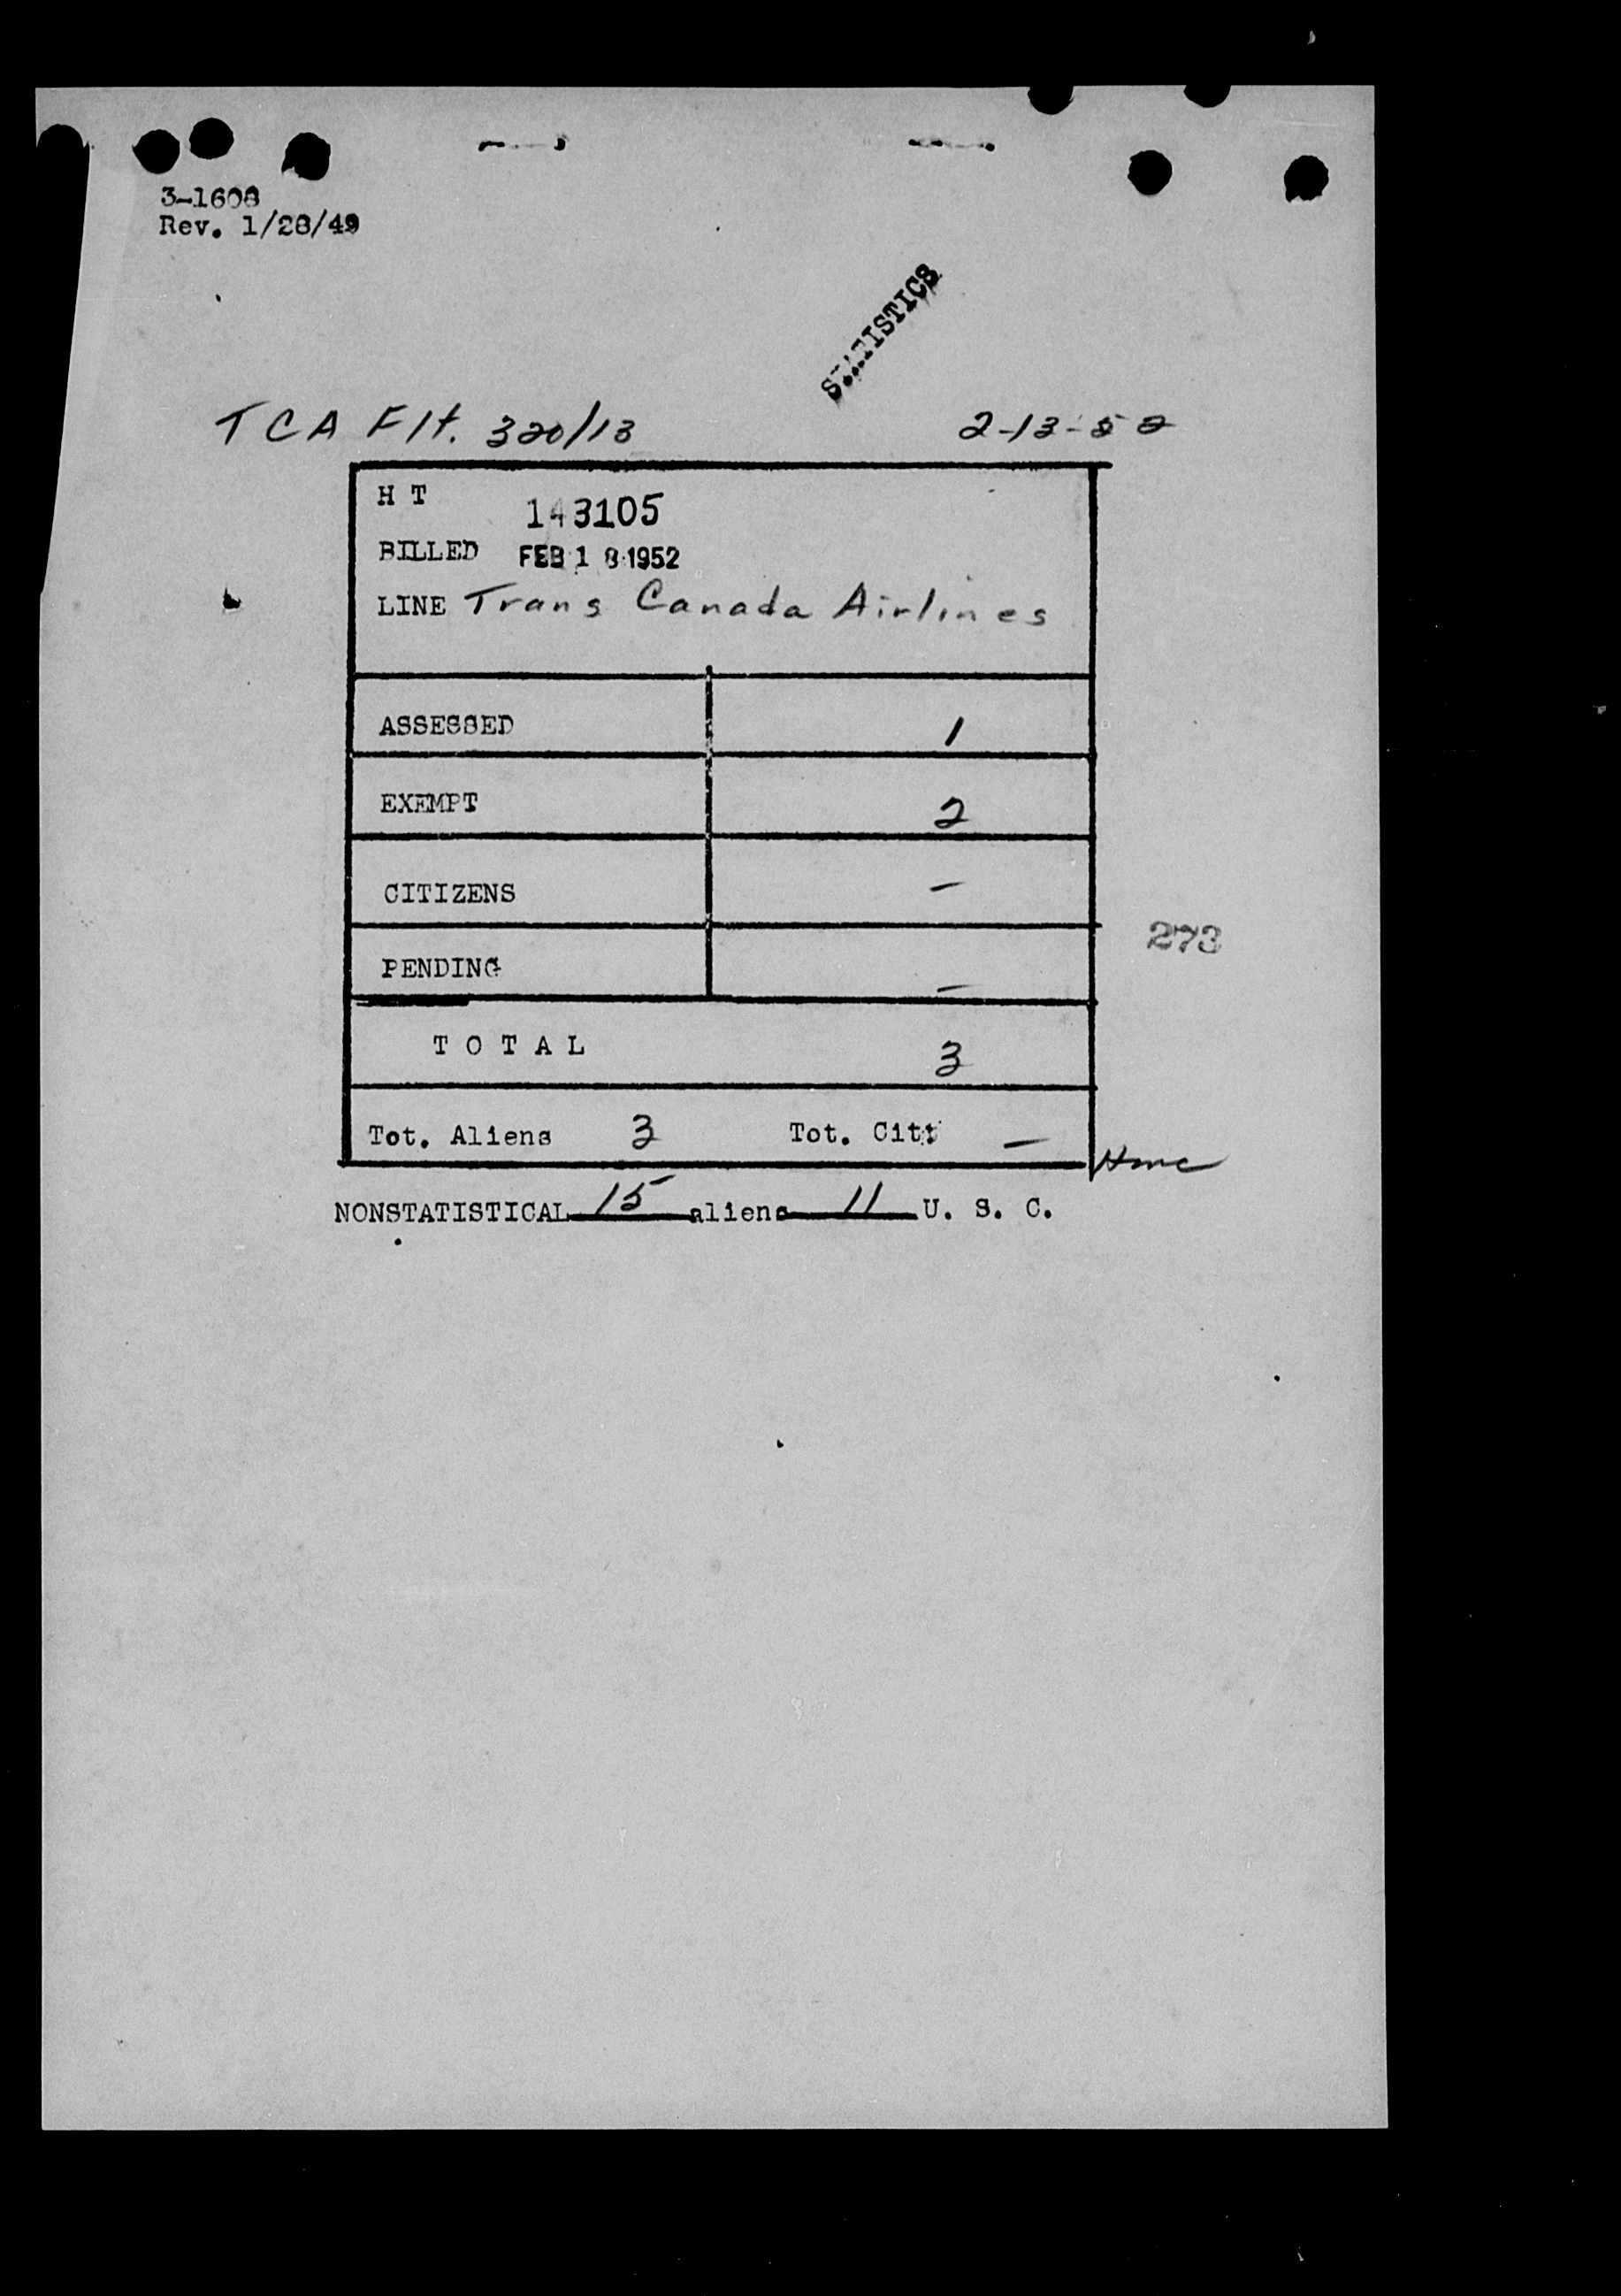 3-1608
Rev. 1/28/49
STATISTICS
TCA Flt. 320/13 2-13-52
H T 143105
BILLED FEB 18 1952
LINE Trans Canada Airlines
ASSESSED 1
EXEMPT 2
CITIZENS -
273
PENDING -
T O T A L 3
Tot. Aliens 3 Tot. Citt -
NONSTATISTICAL 15 aliens 11 U. S. C.